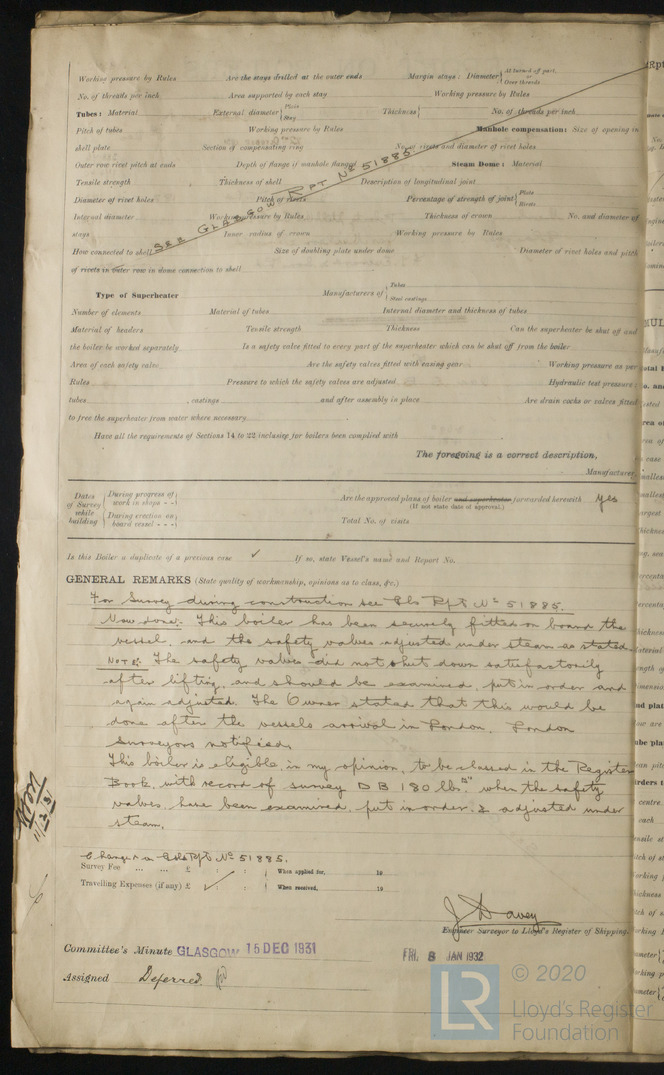 Working pressure by Rules Are the stays drilled at the outer ends Margin stays: Diameter { At turned off part, or Over threads
No. of threads per inch Area supported by each stay Working pressure by Rules
Tubes: Material External diameter { Plain Stay Thickness { No. of threads per inch
Pitch of tubes Working pressure by Rules Manhole compensation: Size of opening in
shell plate Section of compensating ring No. of rivets and diameter of rivet holes
Outer row rivet pitch at ends Depth of flange if manhole flanged Steam Dome: Material
Tensile strength Thickness of shell Description of longitudinal joint
Diameter of rivet holes Pitch of rivets Percentage of strength of joint { Plate Rivets
Internal diameter Working pressure by Rules Thickness of crown No. and diameter of
stays Inner radius of crown Working pressure by Rules
SEE GLASGOW RPT No 51885
How connected to shell Size of doubling plate under dome Diameter of rivet holes and pitch
of rivets in outer row in dome connection to shell
Type of Superheater Manufacturers of { Tubes Steel castings
Number of elements Material of tubes Internal diameter and thickness of tubes
Material of headers Tensile strength Thickness Can the superheater be shut off and
the boiler be worked separately Is a safety valve fitted to every part of the superheater which can be shut off from the boiler
Area of each safety valve Are the safety valves fitted with easing gear Working pressure as per
Rules Pressure to which the safety valves are adjusted Hydraulic test pressure:
tubes , castings and after assembly in place Are drain cocks or valves fitted
to free the superheater from water where necessary
Have all the requirements of Sections 14 to 22 inclusive for boilers been complied with
The foregoing is a correct description,
Manufacturer.
Dates of Survey while building { During progress of work in shops - - { During erection on board vessel - - -
Are the approved plans of boiler and superheater forwarded herewith yes
(If not state date of approval.)
Total No. of visits
Is this Boiler a duplicate of a previous case ✓ If so, state Vessel's name and Report No.
GENERAL REMARKS (State quality of workmanship, opinions as to class, &c.)
For Survey during construction see Gls Rpt No 51885.
Now done. This boiler has been securely fitted on board the
vessel, and the safety valves adjusted under steam as stated.
NOTE: The safety valves did not shut down satisfactorily
after lifting, and should be examined, put in order and
again adjusted. The Owner stated that this would be
done after the vessels arrival in London. London
Surveyors notified.
This boiler is eligible, in my opinion, to be classed in the Register
Book, with record of survey DB 180 lbs. when the safety
valves have been examined, put in order, & adjusted under
steam.
Charge on Gls Rpt No 51885.
Survey Fee ... ... £ : : { When applied for, 19
Travelling Expenses (if any) £ : : { When received, 19
J Davey
Engineer Surveyor to Lloyd's Register of Shipping.
Committee's Minute GLASGOW 15 DEC 1931 FRI. 8 JAN 1932
Assigned Deferred
LR © 2020
Lloyd's Register
Foundation